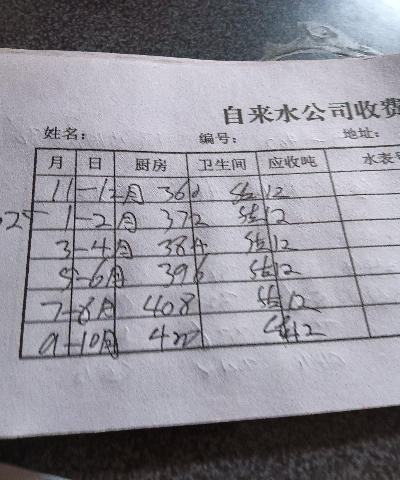 自来水公司收费
姓名： 编号： 地址：
月 日 厨房 卫生间 应收吨 水表
11-12月 360 12
1-2月 372 12
3-4月 384 12
5-6月 396 12
7-8月 408 12
9-10月 420 12